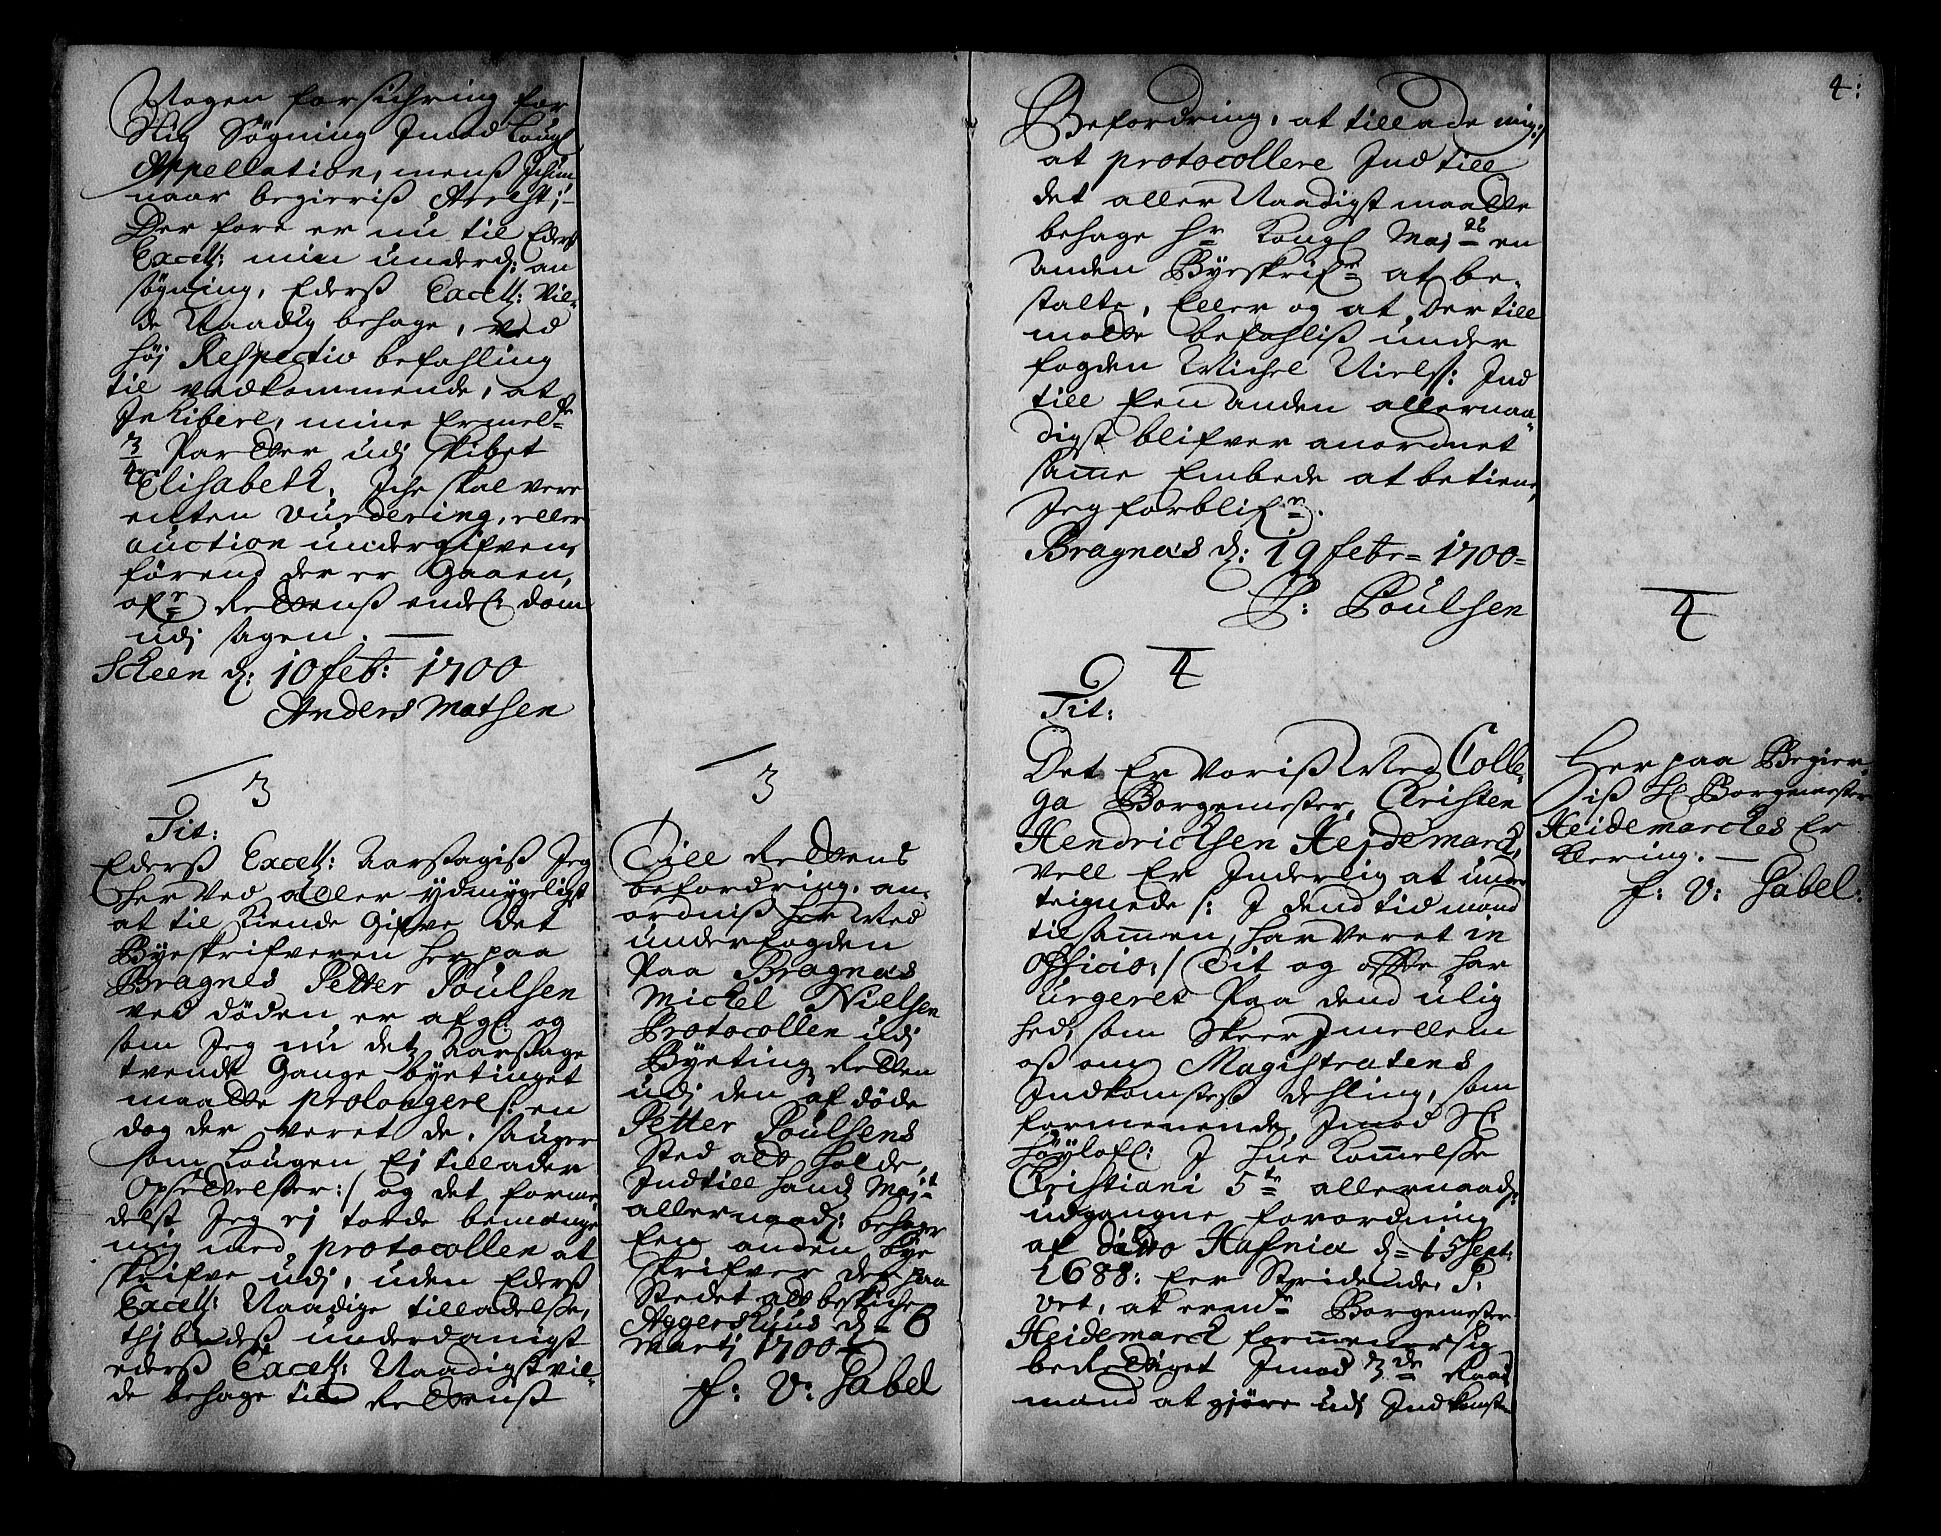 Nogen forsichring for
Slig Søgning Jmod Kongl
Appellation, menß Jchun
naar begieriß Arrest;
Der fore er nu til Eders
Excell: min underd: an
søgning, Ederß Excell: vil-
de Naadig behage, ved
høj Respectiv befahling
til vedkommende, at
Jnhibere, mine Ermel=te
3/4 Partter udj skibet
Elisabeth, Iche skal vere
enten vurdering, eller
auction undergifven,
førend der er Gaaen,
ofr Rettenß endel: dom
udj sagen.
Scheen d: 10 feb: 1700
Anders Matsen
3
Tit:
Ederß Excell: Aarsagiß Jeg
her ved aller ydmygeligst
at til Kiende Gifve det
Byeskrifveren her paa
Bragnes Petter Poulsen
ved døden er afgl: og
som Jeg nu det Aarsage
trende Gange byetinget
maatte prolongere /: en
dog der veret de, sauger
som Lougen Ej tillader
Opsettelser :/ og det forme
delst Jeg ej torde bemenge
mig med, protocollen at
skrifve udj, uden Ederß
Excell: Naadige tilladelse,
thj bedeß underdanigst
ederß Excell: Naadigst vil-
de behage till Rettenß
3
Till Rettens
befordring, an-
ordniß her ved
underfogden
Paa Bragnæs
Michel Nielsen
Protocollen udj
Byeting Retten
udj den af døde
Petter Poulsens
Sted att holde,
Indtill hans Majt
allernaad: behager
Een anden Bye
skrifver der paa
Stedet att beskiche
Aggershuus d= 6
Martj 1700
F: V: Gabel
4:
Befordring, at tillade mig:/
at protocollere Ind till
det aller Naadigst maatte
behage hr Kongl Majts en
Anden Byeskrifr at be-
stalte, Eller og at der till
motte befahliß under
fogden Michel Niels: Ind
till Een Anden allernaa-
digst blifver anordnet
samme Embede at betiene,
Jeg forblifr.
Bragnæs d: 19 febr= 1700=
P: Poulsen
4
Tit:
Det Er voriß Med Colle-
ga Borgemester Christen
Hendrichsen Heidemarck,
vell Er Inderlig at under
teignede /: I dend tid mand
tilsammen har veret in
Officio :/ Tit og ofte har
urgeret Paa dend ulig
hed, som skeer Jmellem
oß om Magistratens
Indkomsteß dehling, som
formenende Jmod Sl:
høylofl: I hue kommelse
Christiani 5te allernaad:
udgangne forordning
af dato Hafnia d= 15 Sept:
1688: Eer Stridende P:
vet, at ermte Borgemester
Heidemarck formener sig
berettiget Jmod 3de Raad
mænd at gjøre udj Indkomste
4
Her paa Begier-
iß Hr Borgemester
Heidemarckes Er
klering.
F: V: Gabel: